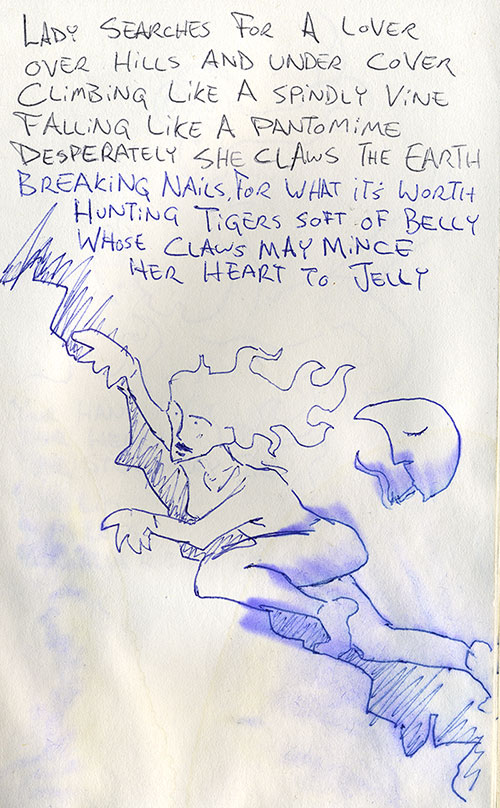 LADY SEARCHES FOR A LOVER
OVER HILLS AND UNDER COVER
CLIMBING LIKE A SPINDLY VINE
FALLING LIKE A PANTOMIME
DESPERATELY SHE CLAWS THE EARTH
BREAKING NAILS, FOR WHAT IT'S WORTH
HUNTING TIGERS SOFT OF BELLY
WHOSE CLAWS MAY MINCE
HER HEART TO JELLY